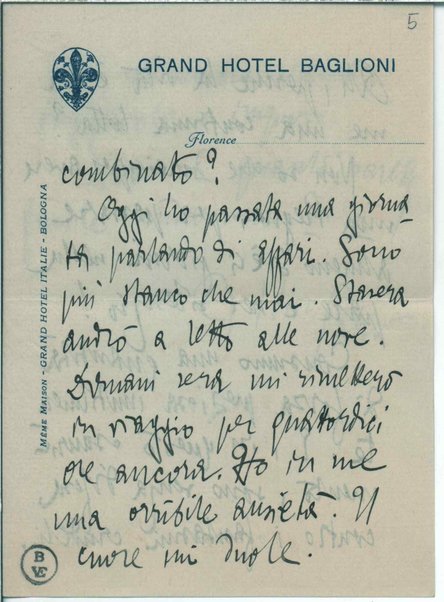 5
GRAND HOTEL BAGLIONI
Florence
MÊME MAISON - GRAND HOTEL ITALIE - BOLOGNA
combinato?
Oggi ho passata una giorna-
ta parlando di affari. Sono
più stanco che mai. Stasera
andrò a letto alle nove.
Domani sera mi rimetterò
in viaggio per quattordici
ore ancora. Ho in me
una orribile ansietà. Il
cuore mi duole.
B
VE